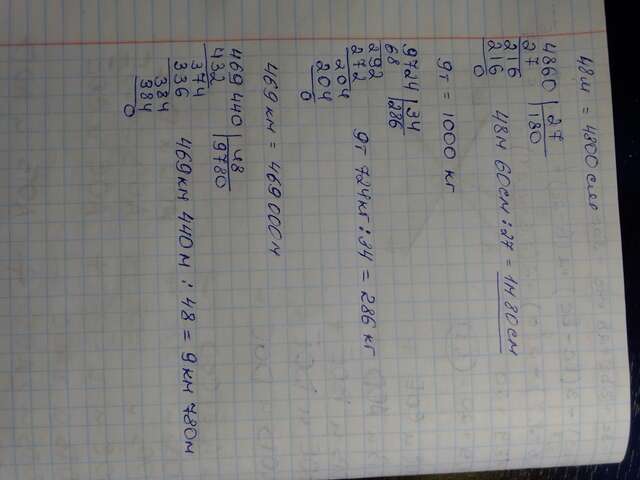 48м = 4800см
4860 | 27
27 | 180
216
216
0
48м 60см : 27 = 1м 80см
9т = 1000 кг
9724 | 34
68 | 286
292
272
204
204
0
9т 724кг : 34 = 286 кг
469км = 469 000м
469 440 | 48
432 | 9780
374
336
384
384
0
469км 440м : 48 = 9км 780м